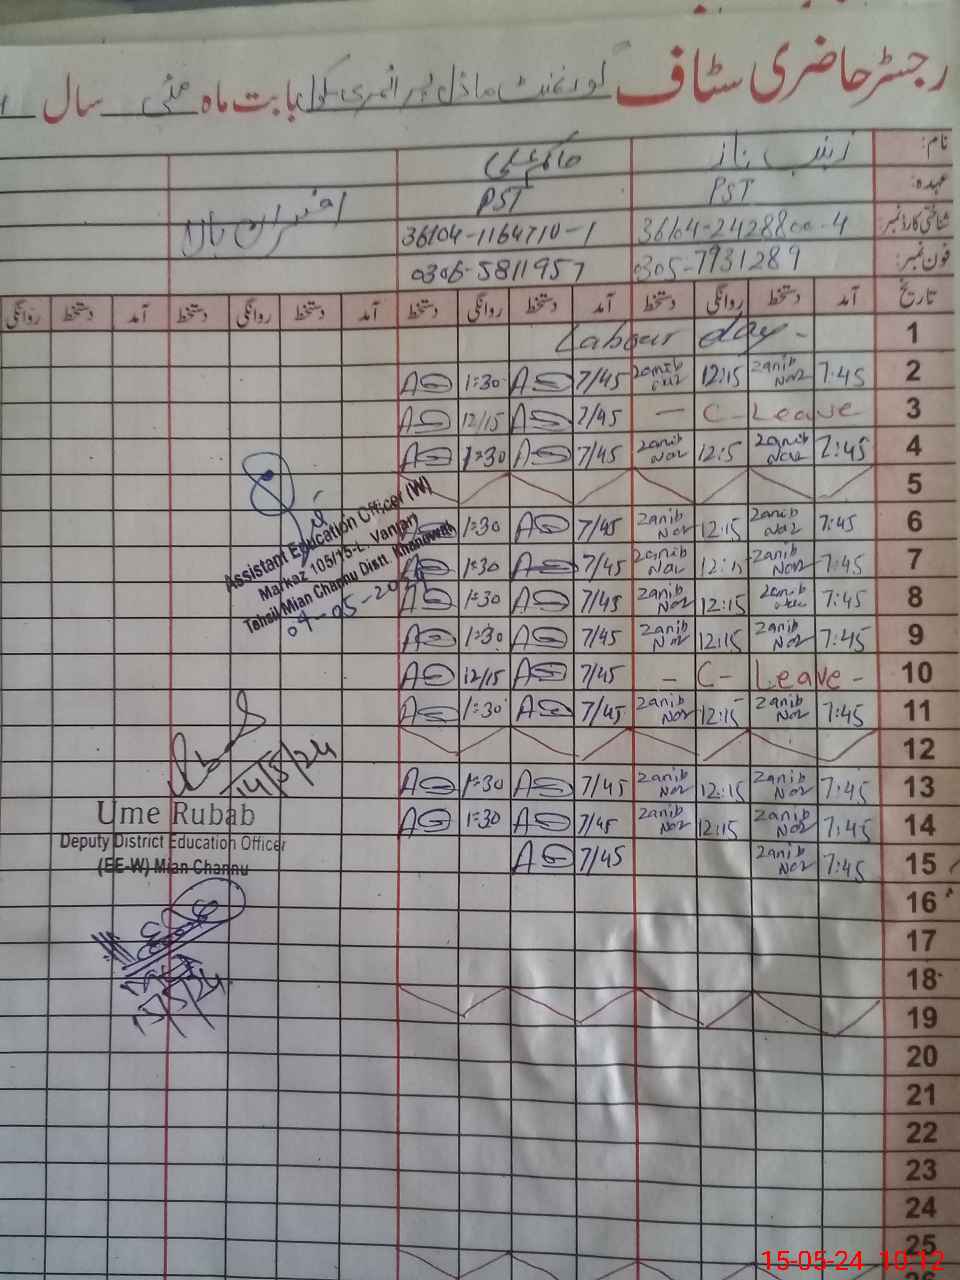 رجسٹر حاضری سٹاف گورنمنٹ ماڈل پرائمری سکول بابت ماہ مئی سال
نام: زینب ناز
عہدہ: PST PST
شناختی کارڈ نمبر: 36104-2428800-4 36104-1164710-1 افسران بالا
فون نمبر: 0305-7931289 0306-5811957
تاریخ آمد دستخط روانگی دستخط آمد دستخط روانگی دستخط آمد دستخط روانگی دستخط آمد دستخط روانگی
Labour day - 1
AS 1:30 AS 7/45 Zanib Noz 12:15 Zanib Noz 7:45 2
AS 12/15 AS 7/45 — C-Leave 3
AS 1:30 AS 7/45 Zanib Noz 12:5 Zanib Noz 7:45 4
5
1:30 AS 7/45 Zanib Noz 12:15 Zanib Noz 7:45 6
AS 1:30 AS 7/45 Zanib Noz 12:15 Zanib Noz 7:45 7
AS 1:30 AS 7/45 Zanib Noz 12:15 Zanib 7:45 8
AS 1:30 AS 7/45 Zanib Noz 12:15 Zanib Noz 7:45 9
AS 12/15 AS 7/45 — C- Leave - 10
AS 1:30 AS 7/45 Zanib Noz 12:15 Zanib Noz 7:45 11
12
AS 1:30 AS 7/45 Zanib Noz 12:15 Zanib Noz 7:45 13
AS 1:30 AS 7/45 Zanib Noz 12:15 Zanib Noz 7:45 14
AS 7/45 Zanib Noz 7:45 15
16
17
18
19
20
21
22
23
24
25
Assistant Education Officer (W)
Markaz 105/15-L. Vanjari
Tehsil Mian Channu Distt. Khanewal
04-05-2024
14/5/24
Ume Rubab
Deputy District Education Officer
(EE-W) Mian Channu
15-05-24 10:12